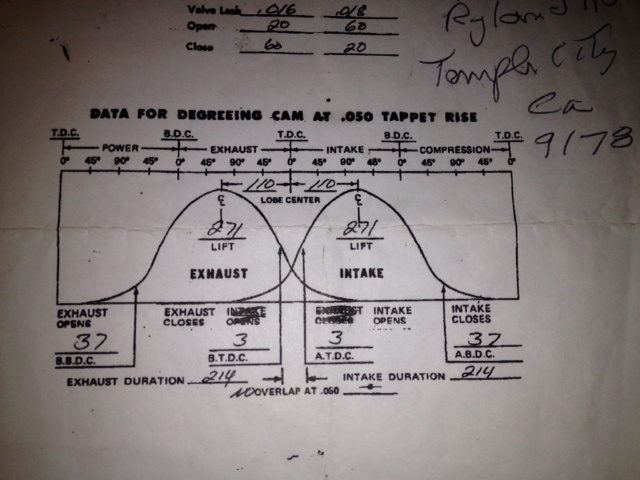 Valve Lash .016 .018
Open 20 60
Close 60 20
Temple City
Ca
9178
DATA FOR DEGREEING CAM AT .050 TAPPET RISE
T.D.C. B.D.C. T.D.C. B.D.C. T.D.C.
POWER EXHAUST INTAKE COMPRESSION
0° 45° 90° 45° 0° 45° 90° 45° 0° 45° 90° 45° 0° 45° 90° 45° 0°
110 110
℄ LOBE CENTER ℄
271 271
LIFT LIFT
EXHAUST INTAKE
EXHAUST OPENS EXHAUST CLOSES INTAKE OPENS INTAKE CLOSES
37 3 3 37
B.B.D.C. B.T.D.C. A.T.D.C. A.B.D.C.
EXHAUST DURATION 214 INTAKE DURATION 214
NO OVERLAP AT .050